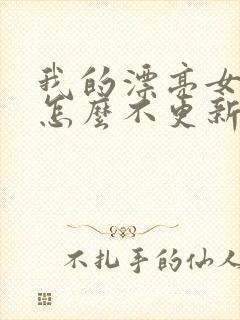 我的漂亮女
怎麼不更新
不扎手的仙人